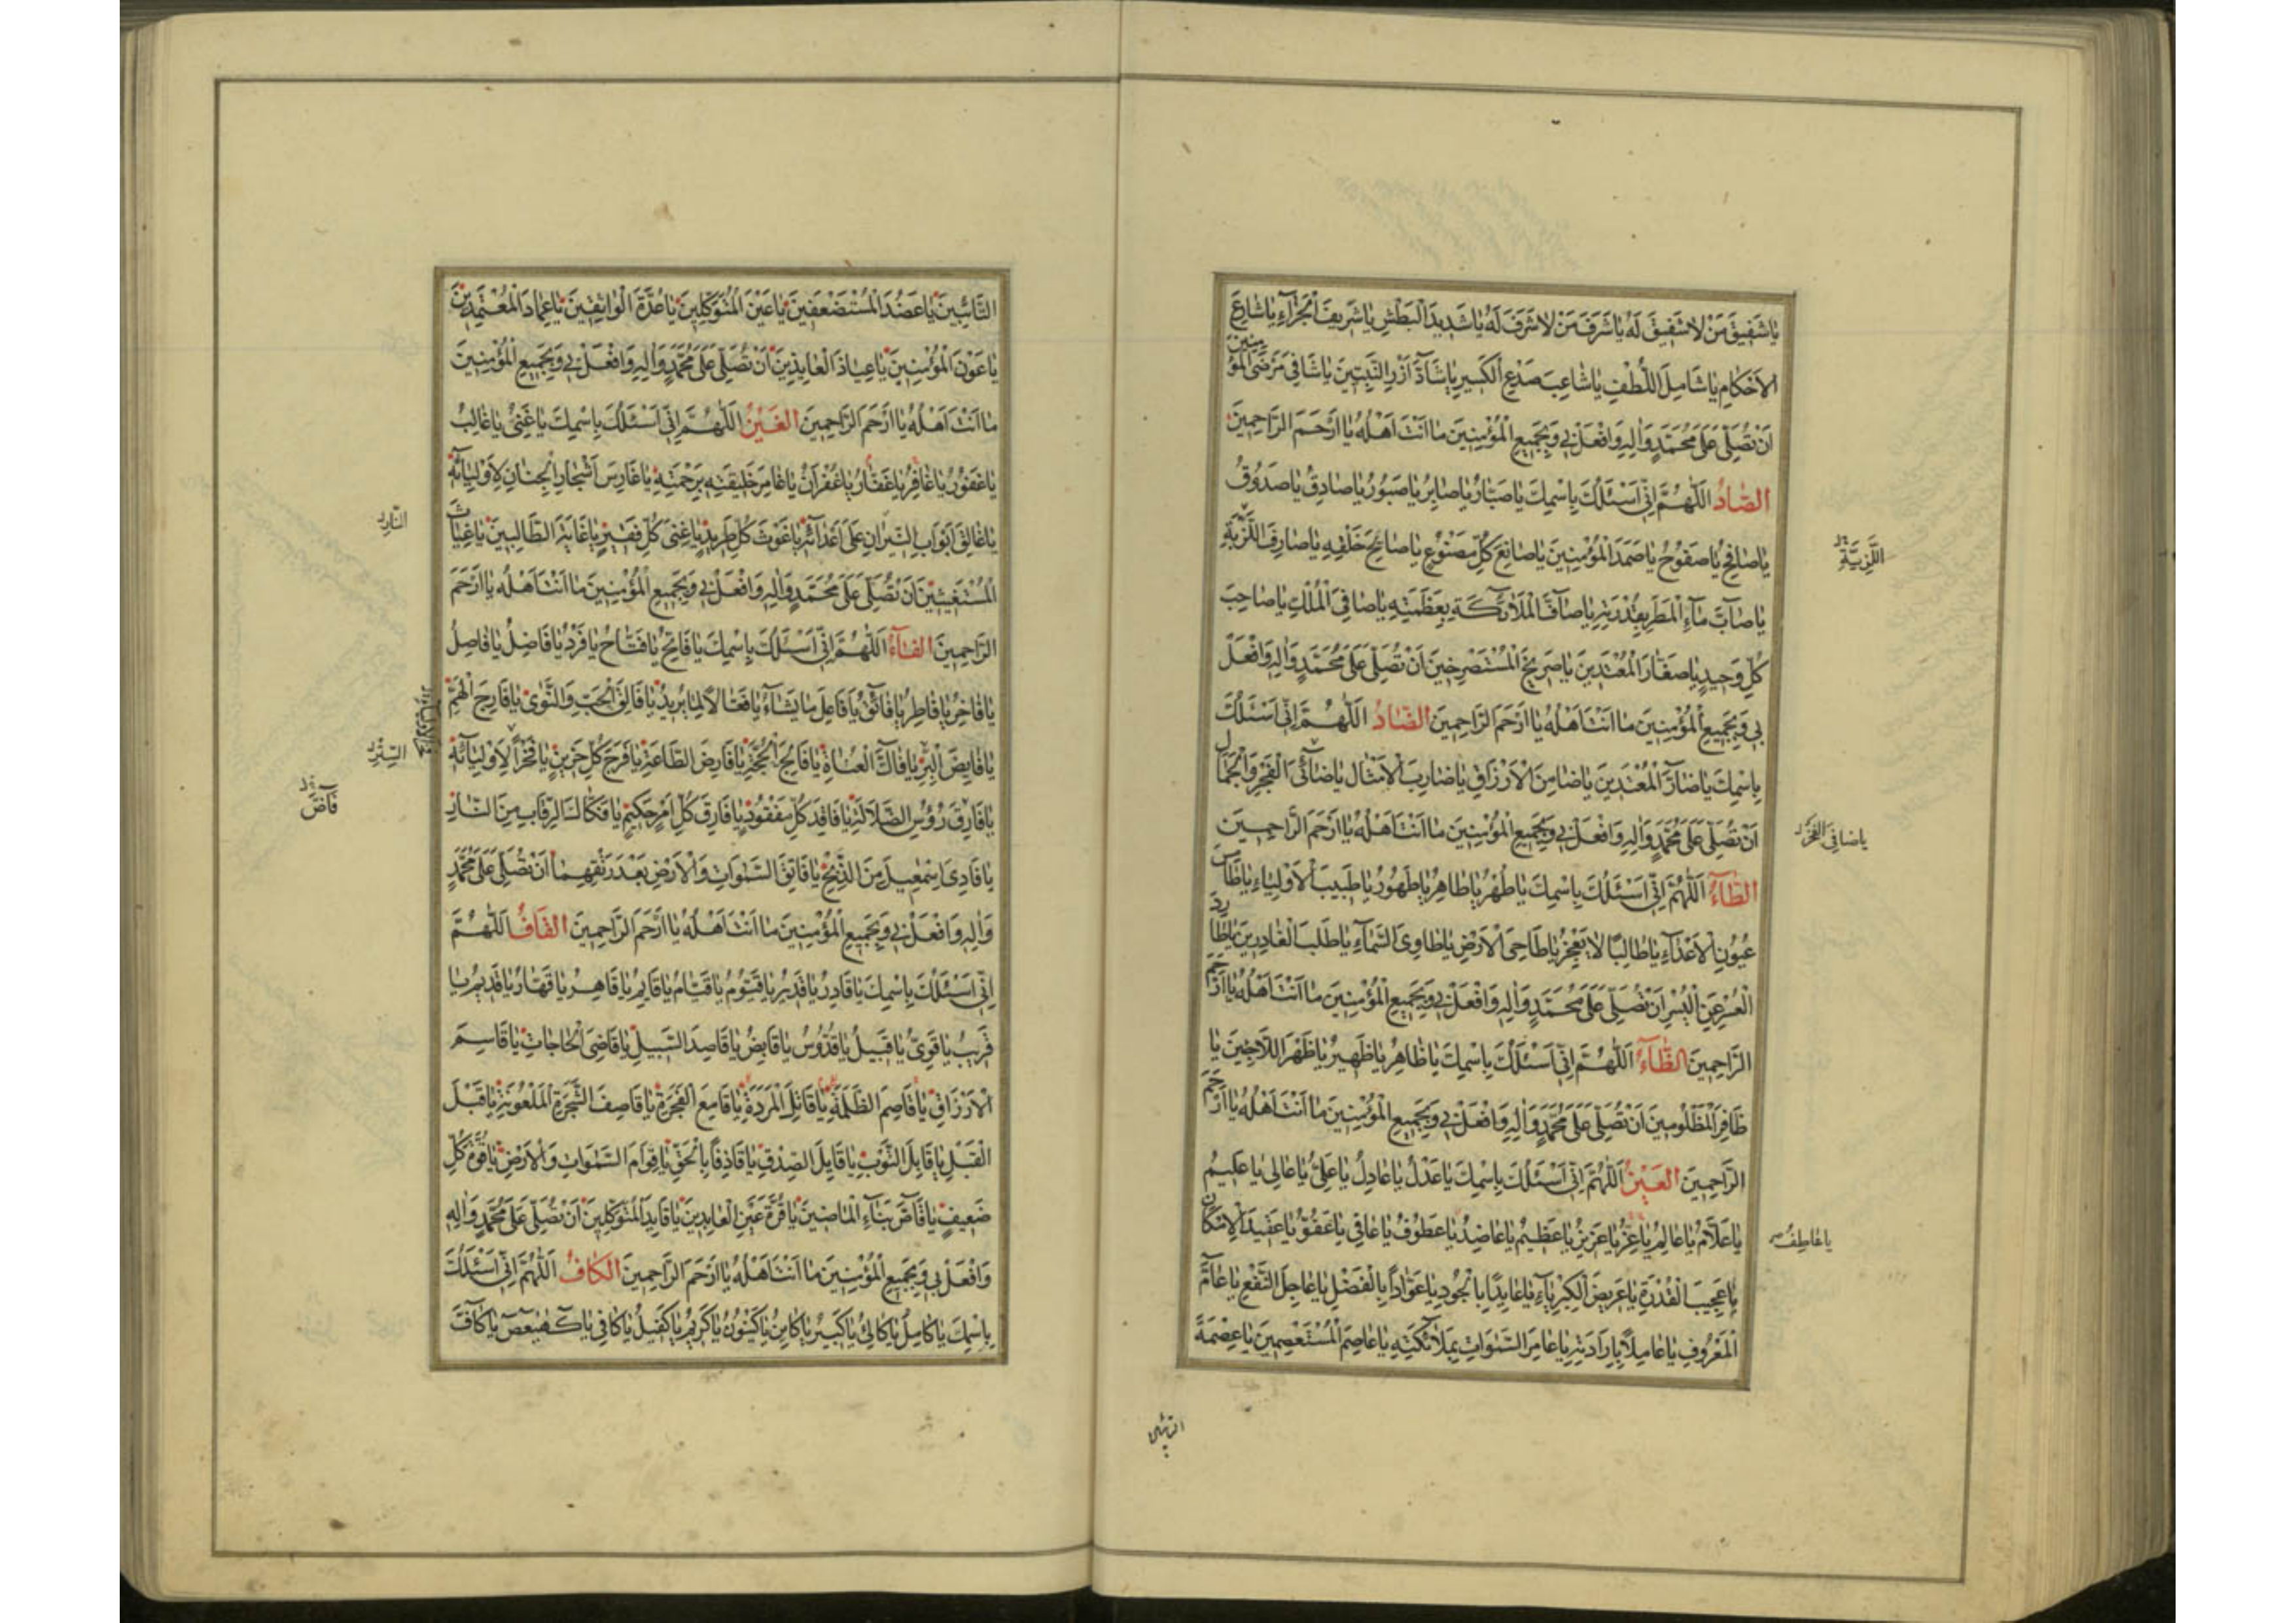 يا شَفيقَ مَنْ لا شَفيقَ لَهُ يا شَرَفَ مَنْ لا شَرَفَ لَهُ يا شَديدَ الْبَطْشِ يا شَريفَ الْجَزآءِ يا شارِعَ
الاَحْكامِ يا شامِلَ اللُّطْفِ يا شاعِبَ صَدْعِ الْكَسيرِ يا شآدَّ اَزْرِ النَّبِيّينَ يا شافِىَ مَرْضَى الْمُؤْمِنينَ
اَنْ تُصَلِّىَ عَلى مُحَمَّدٍ وَالِهِ وَافْعَلْ بى وَبِجَميعِ الْمُؤْمِنينَ ما اَنْتَ اَهْلُهُ يا اَرْحَمَ الرَّاحِمينَ
الصّادُ اَللّهُمَّ اِنّى اَسْئَلُكَ بِاسْمِكَ يا صَبّارُ يا صابِرُ يا صَبُورُ يا صادِقُ يا صَدُوقُ
يا صافِحُ يا صَفُوحُ يا صَمَدَ الْمُؤْمِنينَ يا صانِعَ كُلِّ مَصْنُوعٍ يا صالِحَ خَلْقِهِ يا صارِفَ اللَّزْبَةِ
يا صآبَّ مآءِ الْمَطَرِ بِقُدْرَتِهِ يا صآفَّ الْمَلائِكَةِ بِعَظَمَتِهِ يا صافِىَ الْمُلْكِ يا صاحِبَ
كُلِّ وَحيدٍ يا صَغّارَ الْمُعْتَدينَ يا صَريخَ الْمُسْتَصْرِخينَ اَنْ تُصَلِّىَ عَلى مُحَمَّدٍ وَالِهِ وَافْعَلْ
بى وَبِجَميعِ الْمُؤْمِنينَ ما اَنْتَ اَهْلُهُ يا اَرْحَمَ الرَّاحِمينَ الضّادُ اَللّهُمَّ اِنّى اَسْئَلُكَ
بِاسْمِكَ يا ضآرَّ الْمُعْتَدينَ يا ضامِنَ الْاَرْزاقِ يا ضارِبَ الْاَمْثالِ يا ضآئِىَ الْفَجْرِ وَالْجَمالِ
اَنْ تُصَلِّىَ عَلى مُحَمَّدٍ وَالِهِ وَافْعَلْ بى وَبِجَميعِ الْمُؤْمِنينَ ما اَنْتَ اَهْلُهُ يا اَرْحَمَ الرَّاحِمينَ
الطّآءُ اَللّهُمَّ اِنّى اَسْئَلُكَ بِاسْمِكَ يا طُهْرُ يا طاهِرُ يا طَهُورُ يا طَبيبَ الْاَوْلِياءِ يا طامِسَ
عُيُونِ الْاَعْدآءِ يا طالِبًا لا يَعْجِزُ يا طاحِىَ الْاَرْضِ يا طاوِىَ السَّمآءِ يا طَلَبَ الْغادِرينَ يا طارِدَ
الْعُسْرِ عَنِ الْيُسْرِ اَنْ تُصَلِّىَ عَلى مُحَمَّدٍ وَالِهِ وَافْعَلْ بى وَبِجَميعِ الْمُؤْمِنينَ ما اَنْتَ اَهْلُهُ يا اَرْحَمَ
الرَّاحِمينَ الظّآءُ اَللّهُمَّ اِنّى اَسْئَلُكَ بِاسْمِكَ يا ظاهِرُ يا ظَهيرُ يا ظَهْرَ اللّاجينَ يا
ظافِرَ الْمَظْلُومينَ اَنْ تُصَلِّىَ عَلى مُحَمَّدٍ وَالِهِ وَافْعَلْ بى وَبِجَميعِ الْمُؤْمِنينَ ما اَنْتَ اَهْلُهُ يا اَرْحَمَ
الرَّاحِمينَ الْعَيْنُ اَللّهُمَّ اِنّى اَسْئَلُكَ بِاسْمِكَ يا عَدْلُ يا عادِلُ يا عَلِىُّ يا عالى يا عَليمُ
يا عَلّامُ يا عالِمُ يا عِزُّ يا عَزيزُ يا عَظيمُ يا عاضِدُ يا عَطُوفُ يا عافى يا عَفُوُّ يا عَتيدَ الْاِمْكانِ
يا عَجيبَ الْقُدْرَةِ يا عَريضَ الْكِبْرِيآءِ يا عايِدًا بِالْجُودِ يا عَوّادًا بِالْفَضْلِ يا عاجِلَ النَّفْعِ يا عآمَّ
الْمَعْرُوفِ يا عامِلًا بِاِرادَتِهِ يا عامِرَ السَّمواتِ بِمَلائِكَتِهِ يا عاصِمَ الْمُسْتَعْصِمينَ يا عِصْمَةَ
اللَّزِيَّةِ
يا ضافِىَ الْفَخْرِ
يا عاطِفُ
التّآئِبينَ يا عَضُدَ الْمُسْتَضْعَفينَ يا عَيْنَ الْمُتَوَكِّلينَ يا عُدَّةَ الْواثِقينَ يا عِمادَ الْمُعْتَمِدينَ
يا عَوْنَ الْمُؤْمِنينَ يا عِياذَ الْعائِذينَ اَنْ تُصَلِّىَ عَلى مُحَمَّدٍ وَالِهِ وَافْعَلْ بى وَبِجَميعِ الْمُؤْمِنينَ
ما اَنْتَ اَهْلُهُ يا اَرْحَمَ الرَّاحِمينَ الْغَيْنُ اَللّهُمَّ اِنّى اَسْئَلُكَ بِاسْمِكَ يا غَنِىُّ يا غالِبُ
يا غَفُورُ يا غافِرُ يا غَفّارُ يا غُفْرانُ يا غامِرَ خَليقَتِهِ بِرَحْمَتِهِ يا غارِسَ اَشْجارِ الْجِنانِ لِاَوْلِيآئِهِ
يا غالِقَ اَبْوابِ النّيرانِ عَلى اَعْدآئِهِ يا غَوْثَ كُلِّ طَريدٍ يا غِنى كُلِّ فَقيرٍ يا غايَةَ الطّالِبينَ يا غِياثَ
الْمُسْتَغيثينَ اَنْ تُصَلِّىَ عَلى مُحَمَّدٍ وَالِهِ وَافْعَلْ بى وَبِجَميعِ الْمُؤْمِنينَ ما اَنْتَ اَهْلُهُ يا اَرْحَمَ
الرَّاحِمينَ الْفآءُ اَللّهُمَّ اِنّى اَسْئَلُكَ بِاِسْمِكَ يا فاتِحُ يا فَتّاحُ يا فَرْدُ يا فاضِلُ يا فاصِلُ
يا فاخِرُ يا فاطِرُ يا فائِقُ يا فاعِلَ ما يَشآءُ يا فَعّالًا لِما يُريدُ يا فالِقَ الْحَبِّ وَالنَّوى يا فارِجَ الْهَمِّ
يا فايِضَ الْبِرِّ يا فاكَّ الْعُناةِ يا فالِجَ الْحُجَّةِ يا فارِضَ الطّاعَةِ يا فَرَجَ كُلِّ حَزينٍ يا فَخْرًا لِاَوْلِيآئِهِ
يا فارِقَ رُؤُسِ الضَّلالَةِ يا فاقِدَ كُلِّ مَفْقُودٍ يا فارِقَ كُلِّ اَمْرٍ حَكيمٍ يا فَكّاكَ الرِّقابِ مِنَ النّارِ
يا فادِىَ اِسْمعيلَ مِنَ الذَّبْحِ يا فاتِقَ السَّمواتِ وَالْاَرْضِ بَعْدَ رَتْقِهِما اَنْ تُصَلِّىَ عَلى مُحَمَّدٍ
وَالِهِ وَافْعَلْ بى وَبِجَميعِ الْمُؤْمِنينَ ما اَنْتَ اَهْلُهُ يا اَرْحَمَ الرَّاحِمينَ الْقافُ اَللّهُمَّ
اِنّى اَسْئَلُكَ بِاسْمِكَ يا قادِرُ يا قَديرُ يا قَيُّومُ يا قَيّامُ يا قايِمُ يا قاهِرُ يا قَهّارُ يا قَديمُ يا
قَريبُ يا قَوِىُّ يا قَبيلُ يا قُدُّوسُ يا قابِضُ يا قاصِدَ السَّبيلِ يا قاضِىَ الْحاجاتِ يا قاسِمَ
الْاَرْزاقِ يا قاصِمَ الظَّلَمَةِ يا قاتِلَ الْمَرَدَةِ يا قامِعَ الْفَجَرَةِ يا قاصِفَ الشَّجَرَةِ الْمَلْعُونَةِ يا قَبْلَ
الْقَبْلِ يا قابِلَ التَّوْبِ يا قايِلَ الصِّدْقِ يا قاذِفًا بِالْحَقِّ يا قِوامَ السَّمواتِ وَالْاَرْضِ يا قُوَّةَ كُلِّ
ضَعيفٍ يا قآصَّ نَبَاءِ الْماضينَ يا قُرَّةَ عَيْنِ الْعابِدينَ يا قايِدَ الْمُتَوَكِّلينَ اَنْ تُصَلِّىَ عَلى مُحَمَّدٍ وَالِهِ
وَافْعَلْ بى وَبِجَميعِ الْمُؤْمِنينَ ما اَنْتَ اَهْلُهُ يا اَرْحَمَ الرَّاحِمينَ الْكافُ اَللّهُمَّ اِنّى اَسْئَلُكَ
بِاِسْمِكَ يا كامِلُ يا كالِئُ يا كَبيرُ يا كائِنُ يا كَيْنُونُ يا كَريمُ يا كَفيلُ يا كافى يا كهيعص يا كآفَّ
النّارِ
السِّتْرِ
فآضَّ